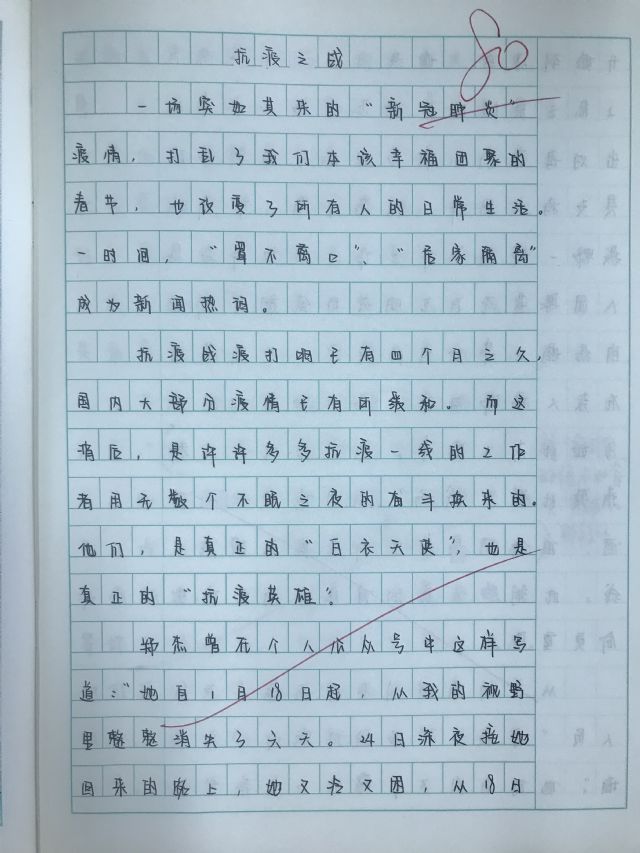 抗疫之战
80
一场突如其来的“新冠肺炎”
疫情，打乱了我们本该幸福团聚的
春节，也改变了所有人的日常生活。
一时间，“罩不离口”、“居家隔离”
成为新闻热词。
抗疫战疫打响已有四个月之久，
国内大部分疫情已有所缓和。而这
背后，是许许多多抗疫一线的工作
者用无数个不眠之夜的奋斗换来的。
他们，是真正的“白衣天使”，也是
真正的“抗疫英雄”。
杰曾在个人公众号中这样写
道：“她自1月18日起，从我的视野
里整整消失了六天。24日深夜接她
回来的路上，她又冷又困，从18日